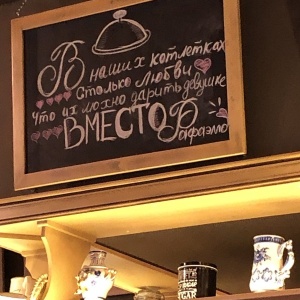 В наших котлетках
столько любви
что их можно дарить девушке
ВМЕСТО Рафаэлло